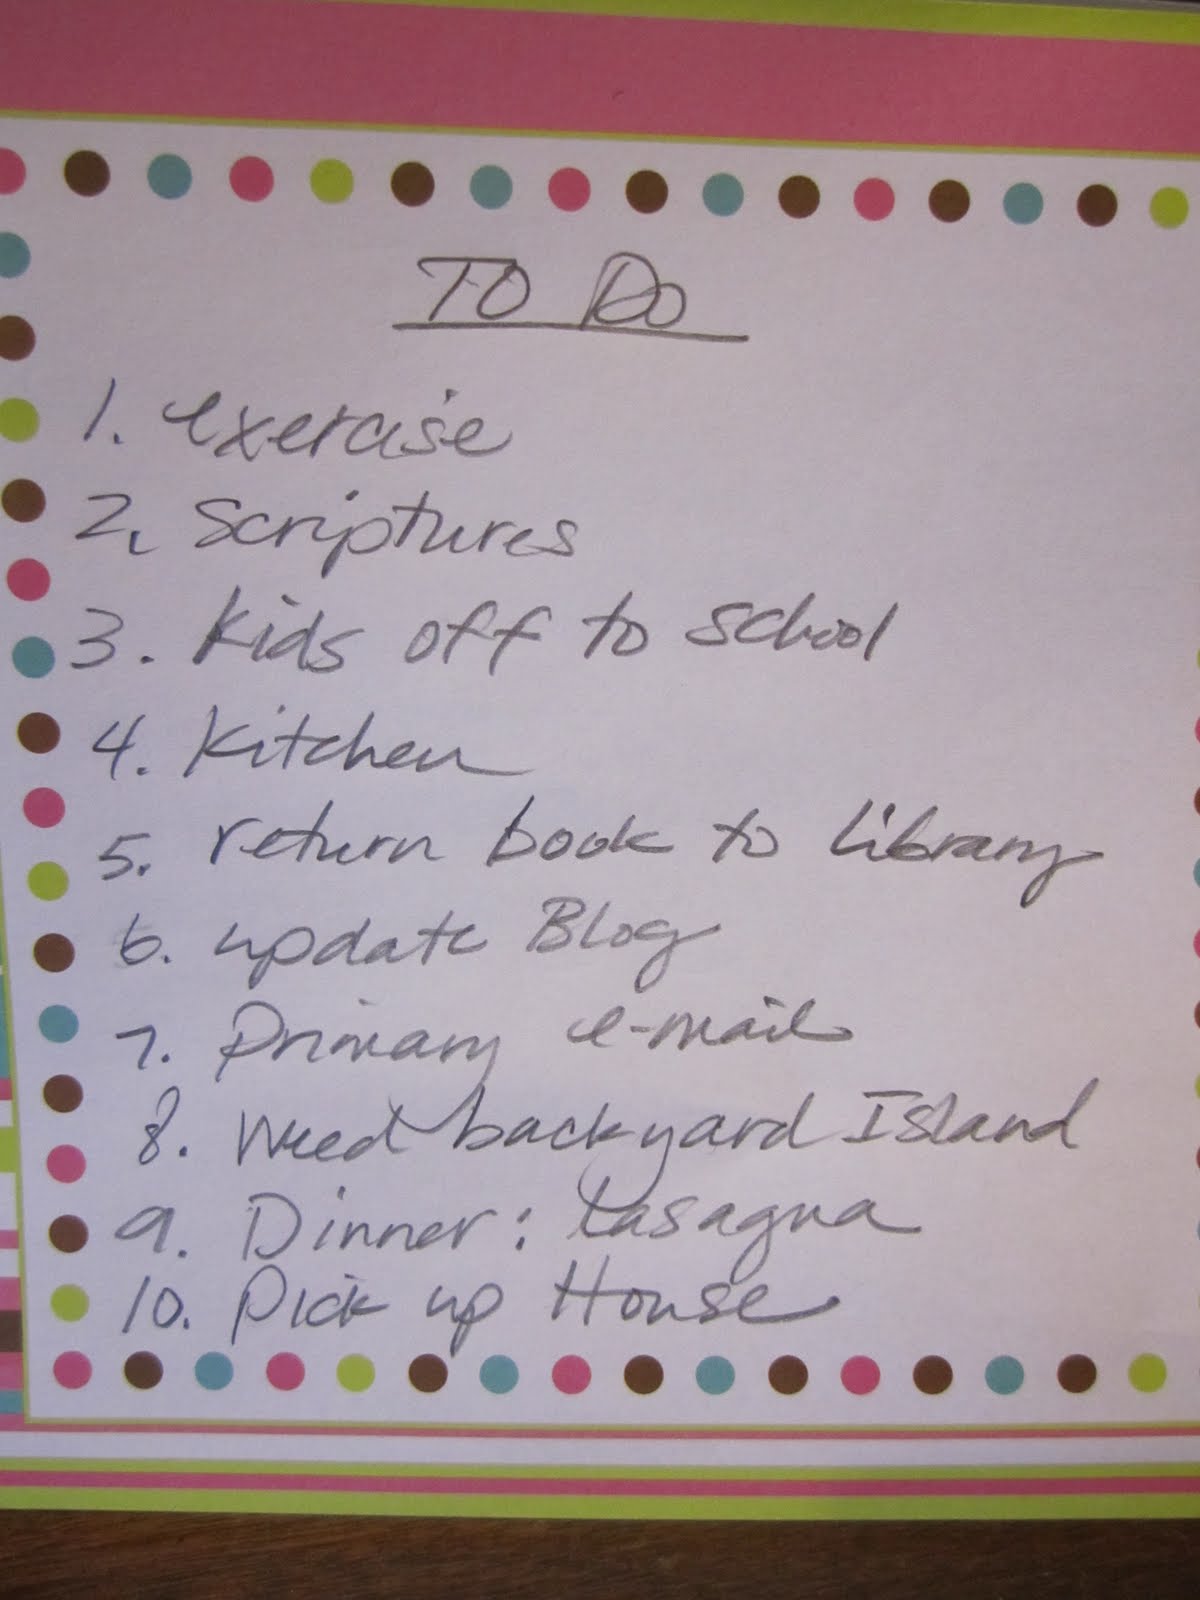 TO DO
1. exercise
2. Scriptures
3. Kids off to school
4. Kitchen
5. return book to Library
6. update Blog
7. Primary e-mail
8. Weed backyard Island
9. Dinner: Lasagna
10. Pick up House